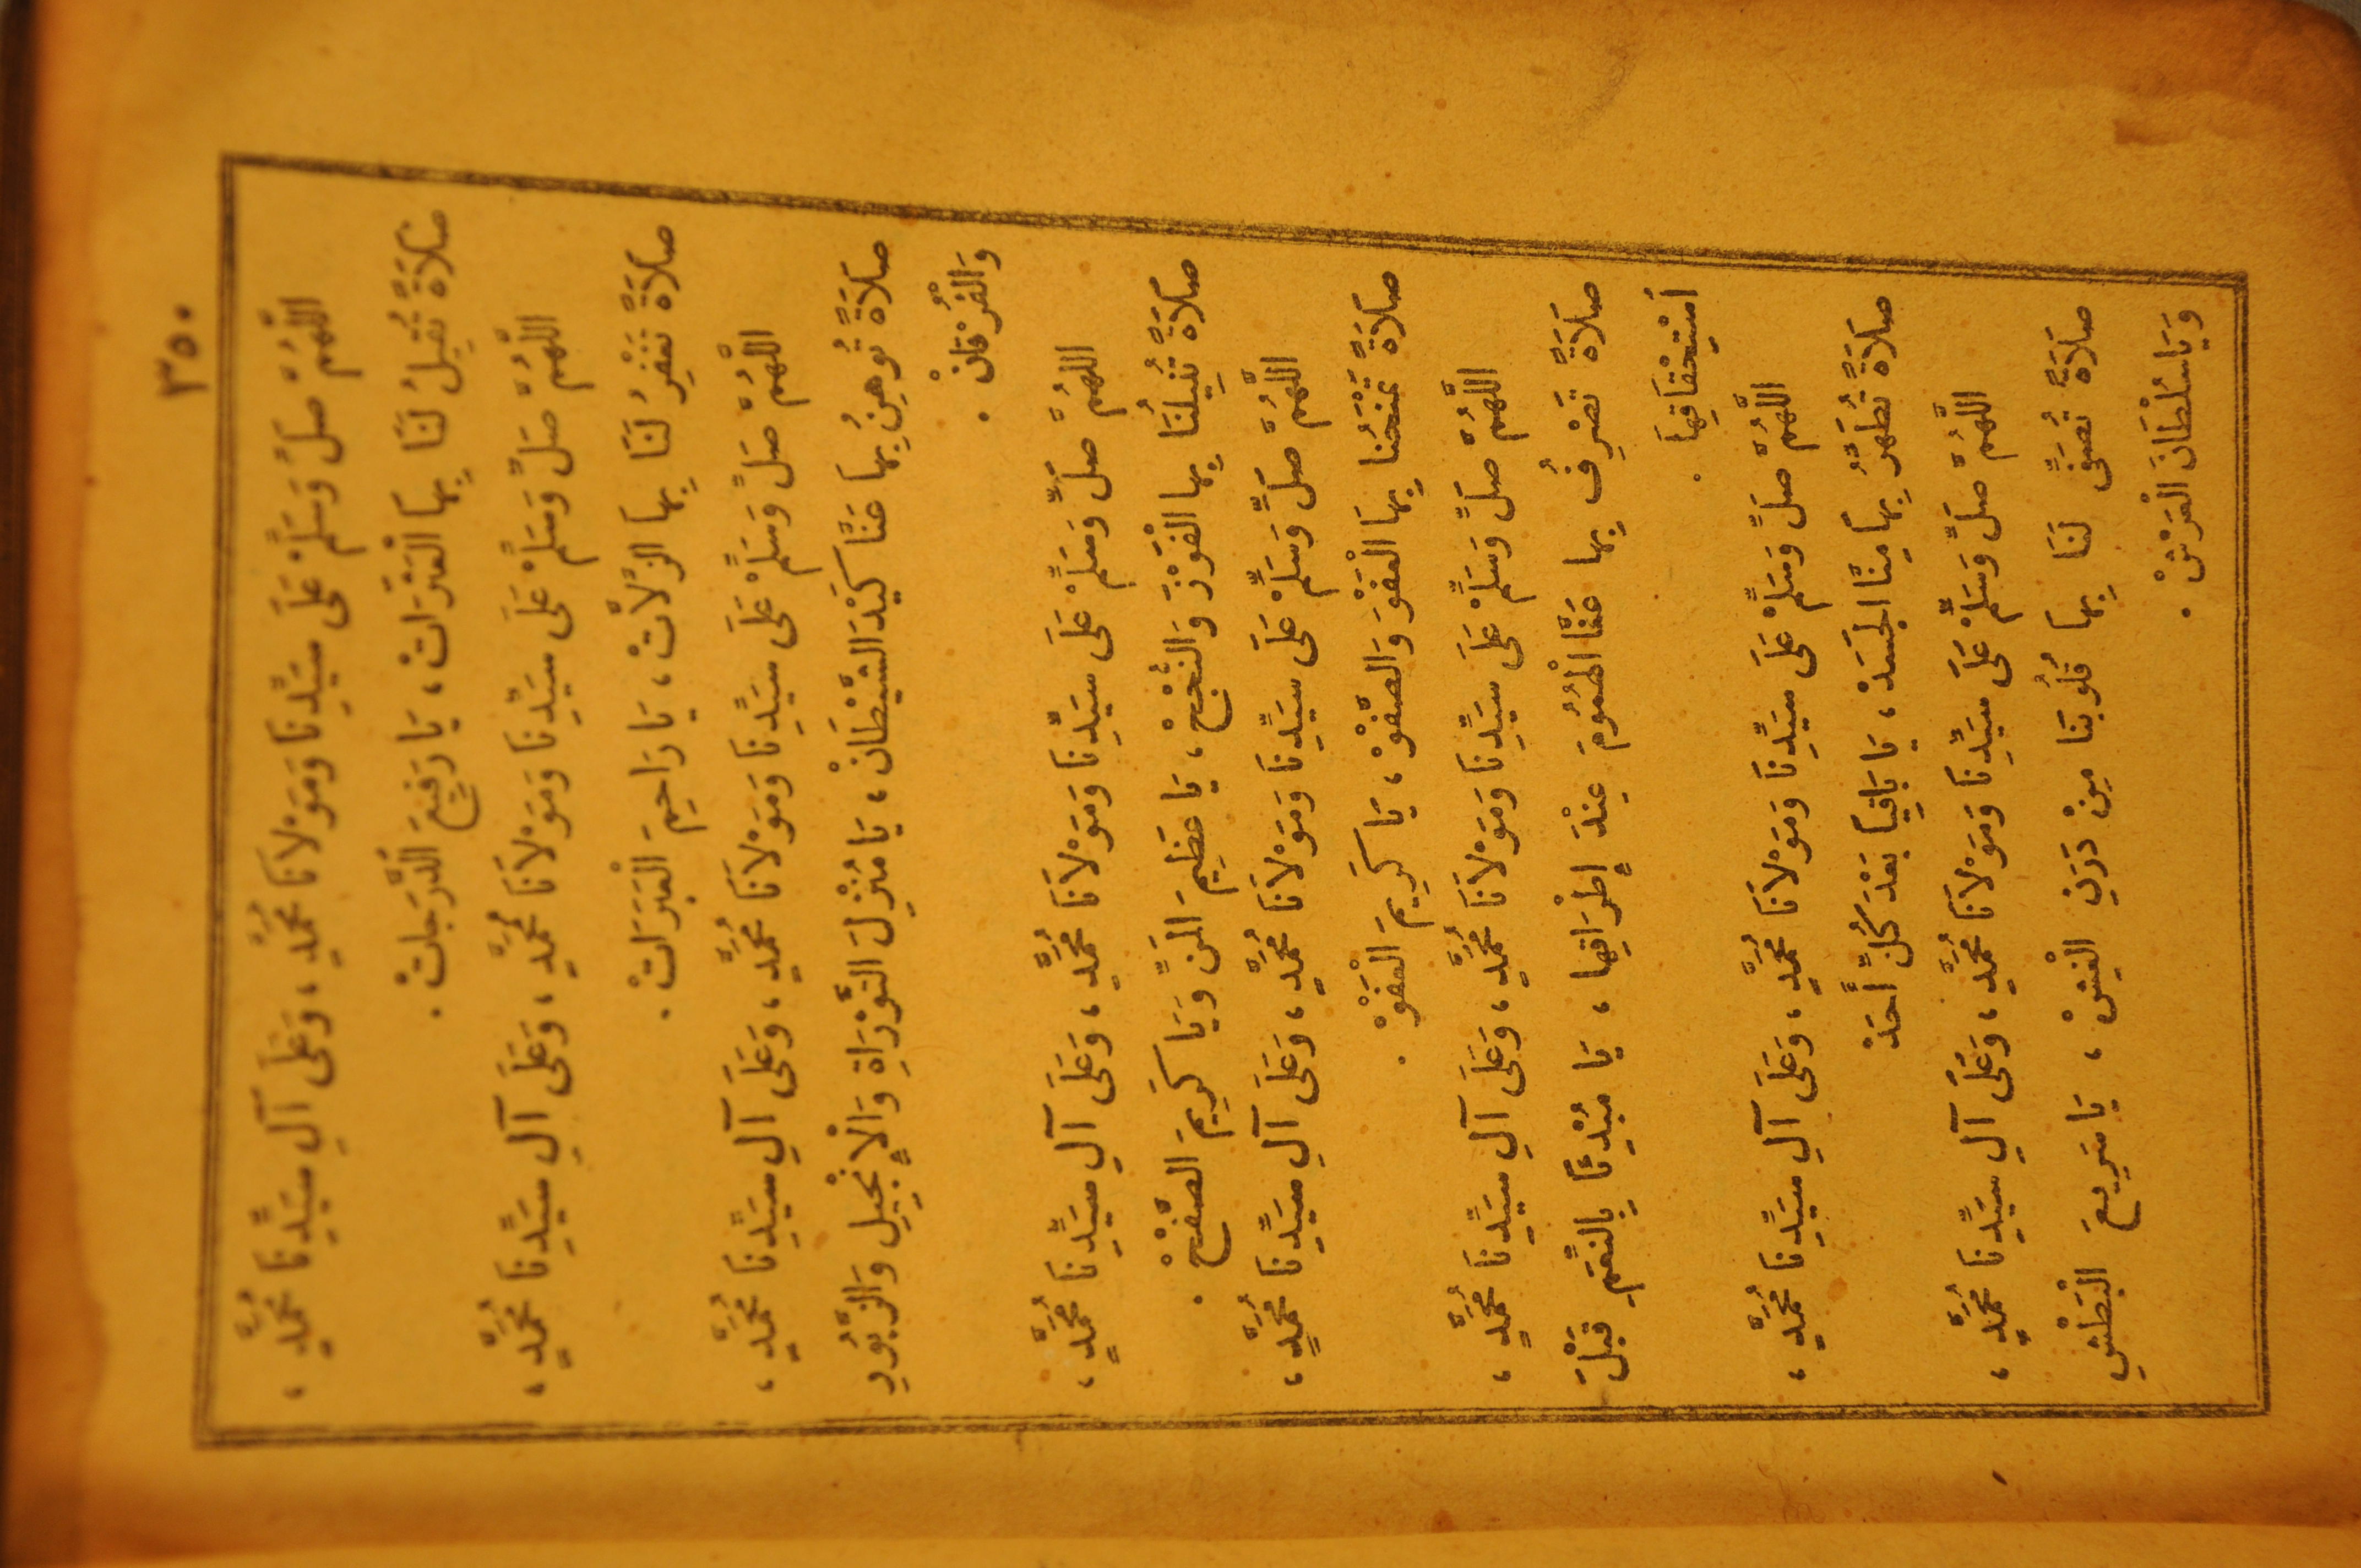 ٣٥٠
اللَّهُمَّ صَلِّ وَسَلِّمْ عَلَى سَيِّدِنَا وَمَوْلَانَا مُحَمَّدٍ، وَعَلَى آلِ سَيِّدِنَا مُحَمَّدٍ،
صَلَاةً تُقِيلُ لَنَا بِهَا الْعَثَرَاتْ، يَا رَفِيعَ الدَّرَجَاتْ.
اللَّهُمَّ صَلِّ وَسَلِّمْ عَلَى سَيِّدِنَا وَمَوْلَانَا مُحَمَّدٍ، وَعَلَى آلِ سَيِّدِنَا مُحَمَّدٍ،
صَلَاةً تَغْفِرُ لَنَا بِهَا الزَّلَّاتْ، يَا رَاحِمَ الْعَبَرَاتْ.
اللَّهُمَّ صَلِّ وَسَلِّمْ عَلَى سَيِّدِنَا وَمَوْلَانَا مُحَمَّدٍ، وَعَلَى آلِ سَيِّدِنَا مُحَمَّدٍ،
صَلَاةً تُوهِنُ بِهَا عَنَّا كَيْدَ الشَّيْطَانْ، يَا مُنْزِلَ التَّوْرَاةِ وَالْإِنْجِيلِ وَالزَّبُورِ
وَالْفُرْقَانْ.
اللَّهُمَّ صَلِّ وَسَلِّمْ عَلَى سَيِّدِنَا وَمَوْلَانَا مُحَمَّدٍ، وَعَلَى آلِ سَيِّدِنَا مُحَمَّدٍ،
صَلَاةً تُنِيلُنَا بِهَا الْفَوْزَ وَالنُّجْحْ، يَا عَظِيمَ الْمَنِّ وَيَا كَرِيمَ الصَّفْحْ.
اللَّهُمَّ صَلِّ وَسَلِّمْ عَلَى سَيِّدِنَا وَمَوْلَانَا مُحَمَّدٍ، وَعَلَى آلِ سَيِّدِنَا مُحَمَّدٍ،
صَلَاةً تَمْنَحُنَا بِهَا الْعَفْوَ وَالصَّفْوْ، يَا كَرِيمَ الْعَفْوْ.
اللَّهُمَّ صَلِّ وَسَلِّمْ عَلَى سَيِّدِنَا وَمَوْلَانَا مُحَمَّدٍ، وَعَلَى آلِ سَيِّدِنَا مُحَمَّدٍ،
صَلَاةً تَصْرِفُ بِهَا عَنَّا الْهُمُومَ عِنْدَ إِطْرَاقِهَا، يَا مُبْدِئًا بِالنِّعَمِ قَبْلَ
اسْتِحْقَاقِهَا.
اللَّهُمَّ صَلِّ وَسَلِّمْ عَلَى سَيِّدِنَا وَمَوْلَانَا مُحَمَّدٍ، وَعَلَى آلِ سَيِّدِنَا مُحَمَّدٍ،
صَلَاةً تُطَهِّرُ بِهَا مِنَّا الْجَسَدْ، يَا بَاقِيًا بَعْدَ كُلِّ أَحَدْ
اللَّهُمَّ صَلِّ وَسَلِّمْ عَلَى سَيِّدِنَا وَمَوْلَانَا مُحَمَّدٍ، وَعَلَى آلِ سَيِّدِنَا مُحَمَّدٍ،
صَلَاةً تُصَفِّى لَنَا بِهَا قُلُوبَنَا مِنْ دَرَنِ الْغِشْ، يَا سَرِيعَ الْبَطْشِ
وَيَا سُلْطَانَ الْعَرْشْ.